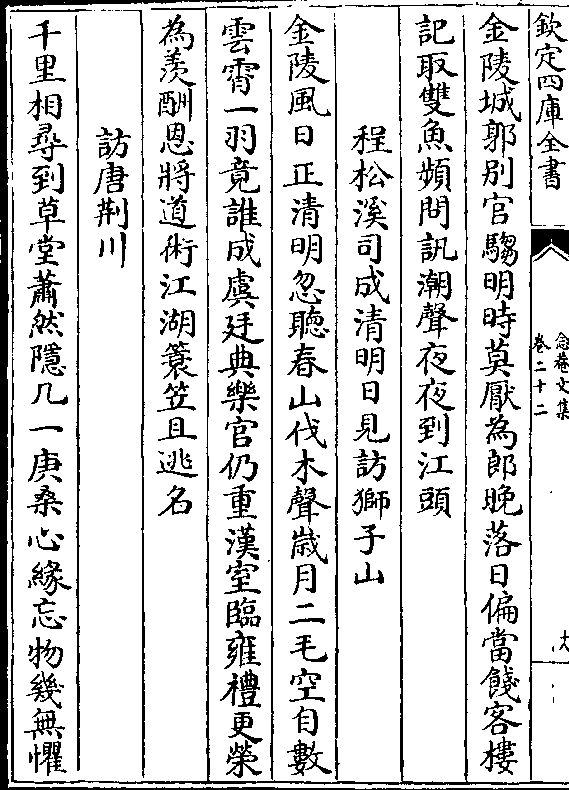 欽定四庫全書
念菴文集
卷二十二
金陵城郭别官騶明時莫厭為郎晚落日偏當餞客樓
記取雙魚頻問訊潮聲夜夜到江頭
程松溪司成清明日見訪獅子山
金陵風日正清明忽聽春山伐木聲嵗月二毛空自數
雲霄一羽竟誰成虞廷典樂官仍重漢室臨雍禮更榮
為羨酬恩將道術江湖簑笠且逃名
訪唐荆川
千里相尋到草堂蕭然隱几一庚桑心緣忘物幾無懼